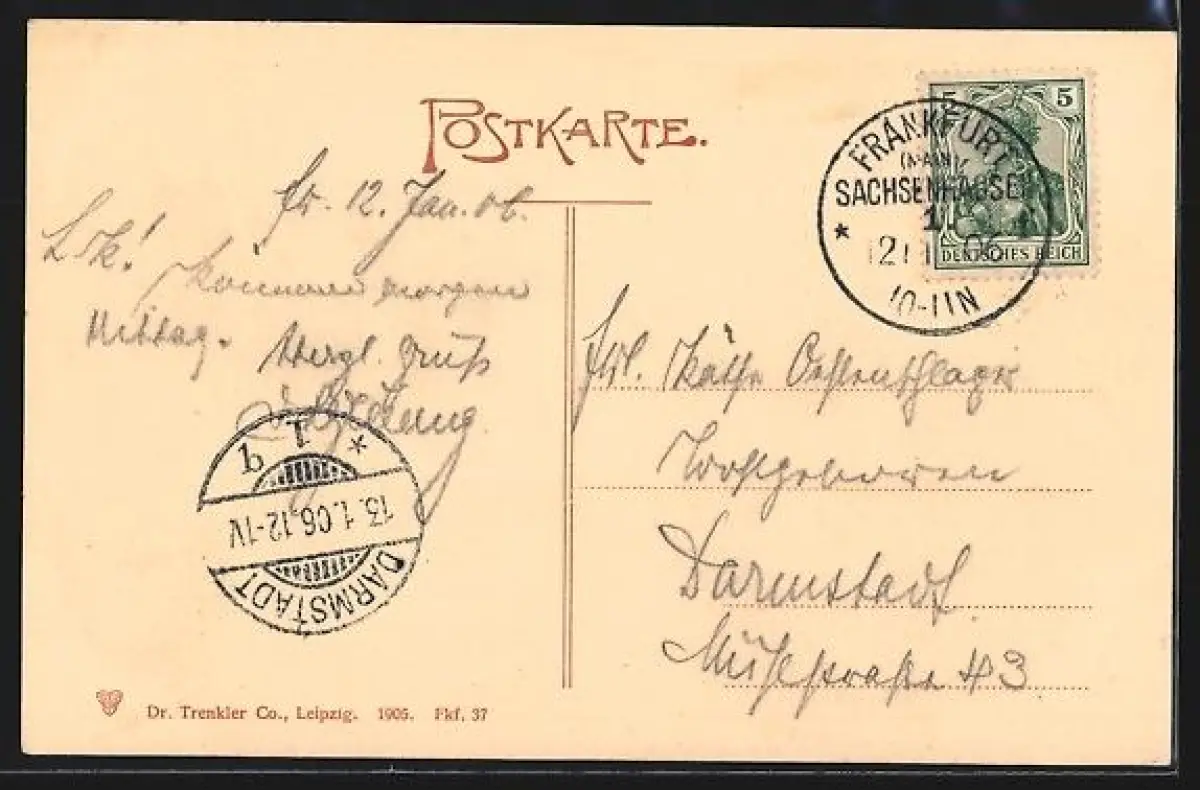 POSTKARTE.
5 5
DEUTSCHES REICH
FRANKFURT
(MAIN)
SACHSENHAUSEN
1
12 1 06
10-11N
fr. 12. Jan. 06.
L. K!
Kommen morgen
Mittag.
Herzl. Gruß
Frl. Käthe Oehlenschlager
Wohlgeboren
Darmstadt.
Mühlstraße 43
DARMSTADT
13.1.06.12-1V
* 1 q
Dr. Trenkler Co., Leipzig. 1905. Fkf. 37